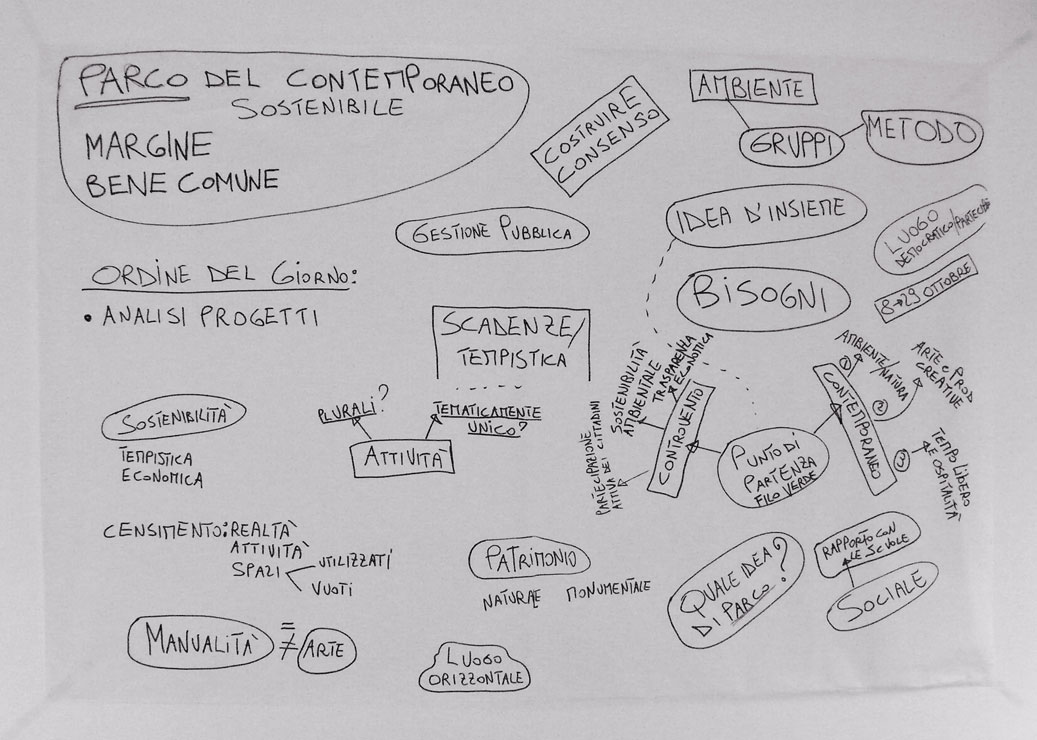 PARCO DEL CONTEMPORANEO
SOSTENIBILE
MARGINE
BENE COMUNE
COSTRUIRE
CONSENSO
AMBIENTE
GRUPPI
METODO
GESTIONE PUBBLICA
IDEA D'INSIEME
LUOGO
DEMOCRATICO/
8→29 OTTOBRE
BISOGNI
ORDINE DEL GIORNO:
• ANALISI PROGETTI
SCADENZE/
TEMPISTICA
PLURALI?
TEMATICAMENTE
UNICO?
ATTIVITÀ
SOSTENIBILITÀ
TEMPISTICA
ECONOMICA
SOSTENIBILITÀ
AMBIENTALE
TRASPARENZA
ECONOMICA
PARTECIPAZIONE
ATTIVA DEI CITTADINI
CONTROVENTO
PUNTO DI
PARTENZA
FILO VERDE
CONTEMPORANEO
1
AMBIENTE/NATURA
2
ARTE e PROD
CREATIVE
3
TEMPO LIBERO
E OSPITALITÀ
CENSIMENTO: REALTÀ
ATTIVITÀ
SPAZI
UTILIZZATI
VUOTI
PATRIMONIO
NATURALE MONUMENTALE
QUALE IDEA
DI PARCO?
RAPPORTO CON
LE SCUOLE
SOCIALE
MANUALITÀ = ≠ ARTE
LUOGO
ORIZZONTALE